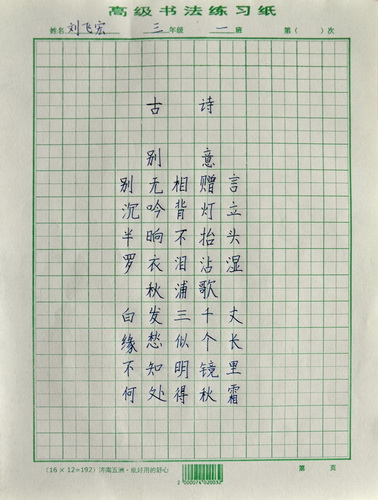 高级书法练习纸
姓名 刘飞宏 三 年级 一 班 第( )次
古 诗
别 意
别无相赠言
沉吟背灯立
半晌不抬头
罗衣泪沾湿
秋浦歌
白发三千丈
缘愁似个长
不知明镜里
何处得秋霜
(16×12=192) 济南五洲·
第 页